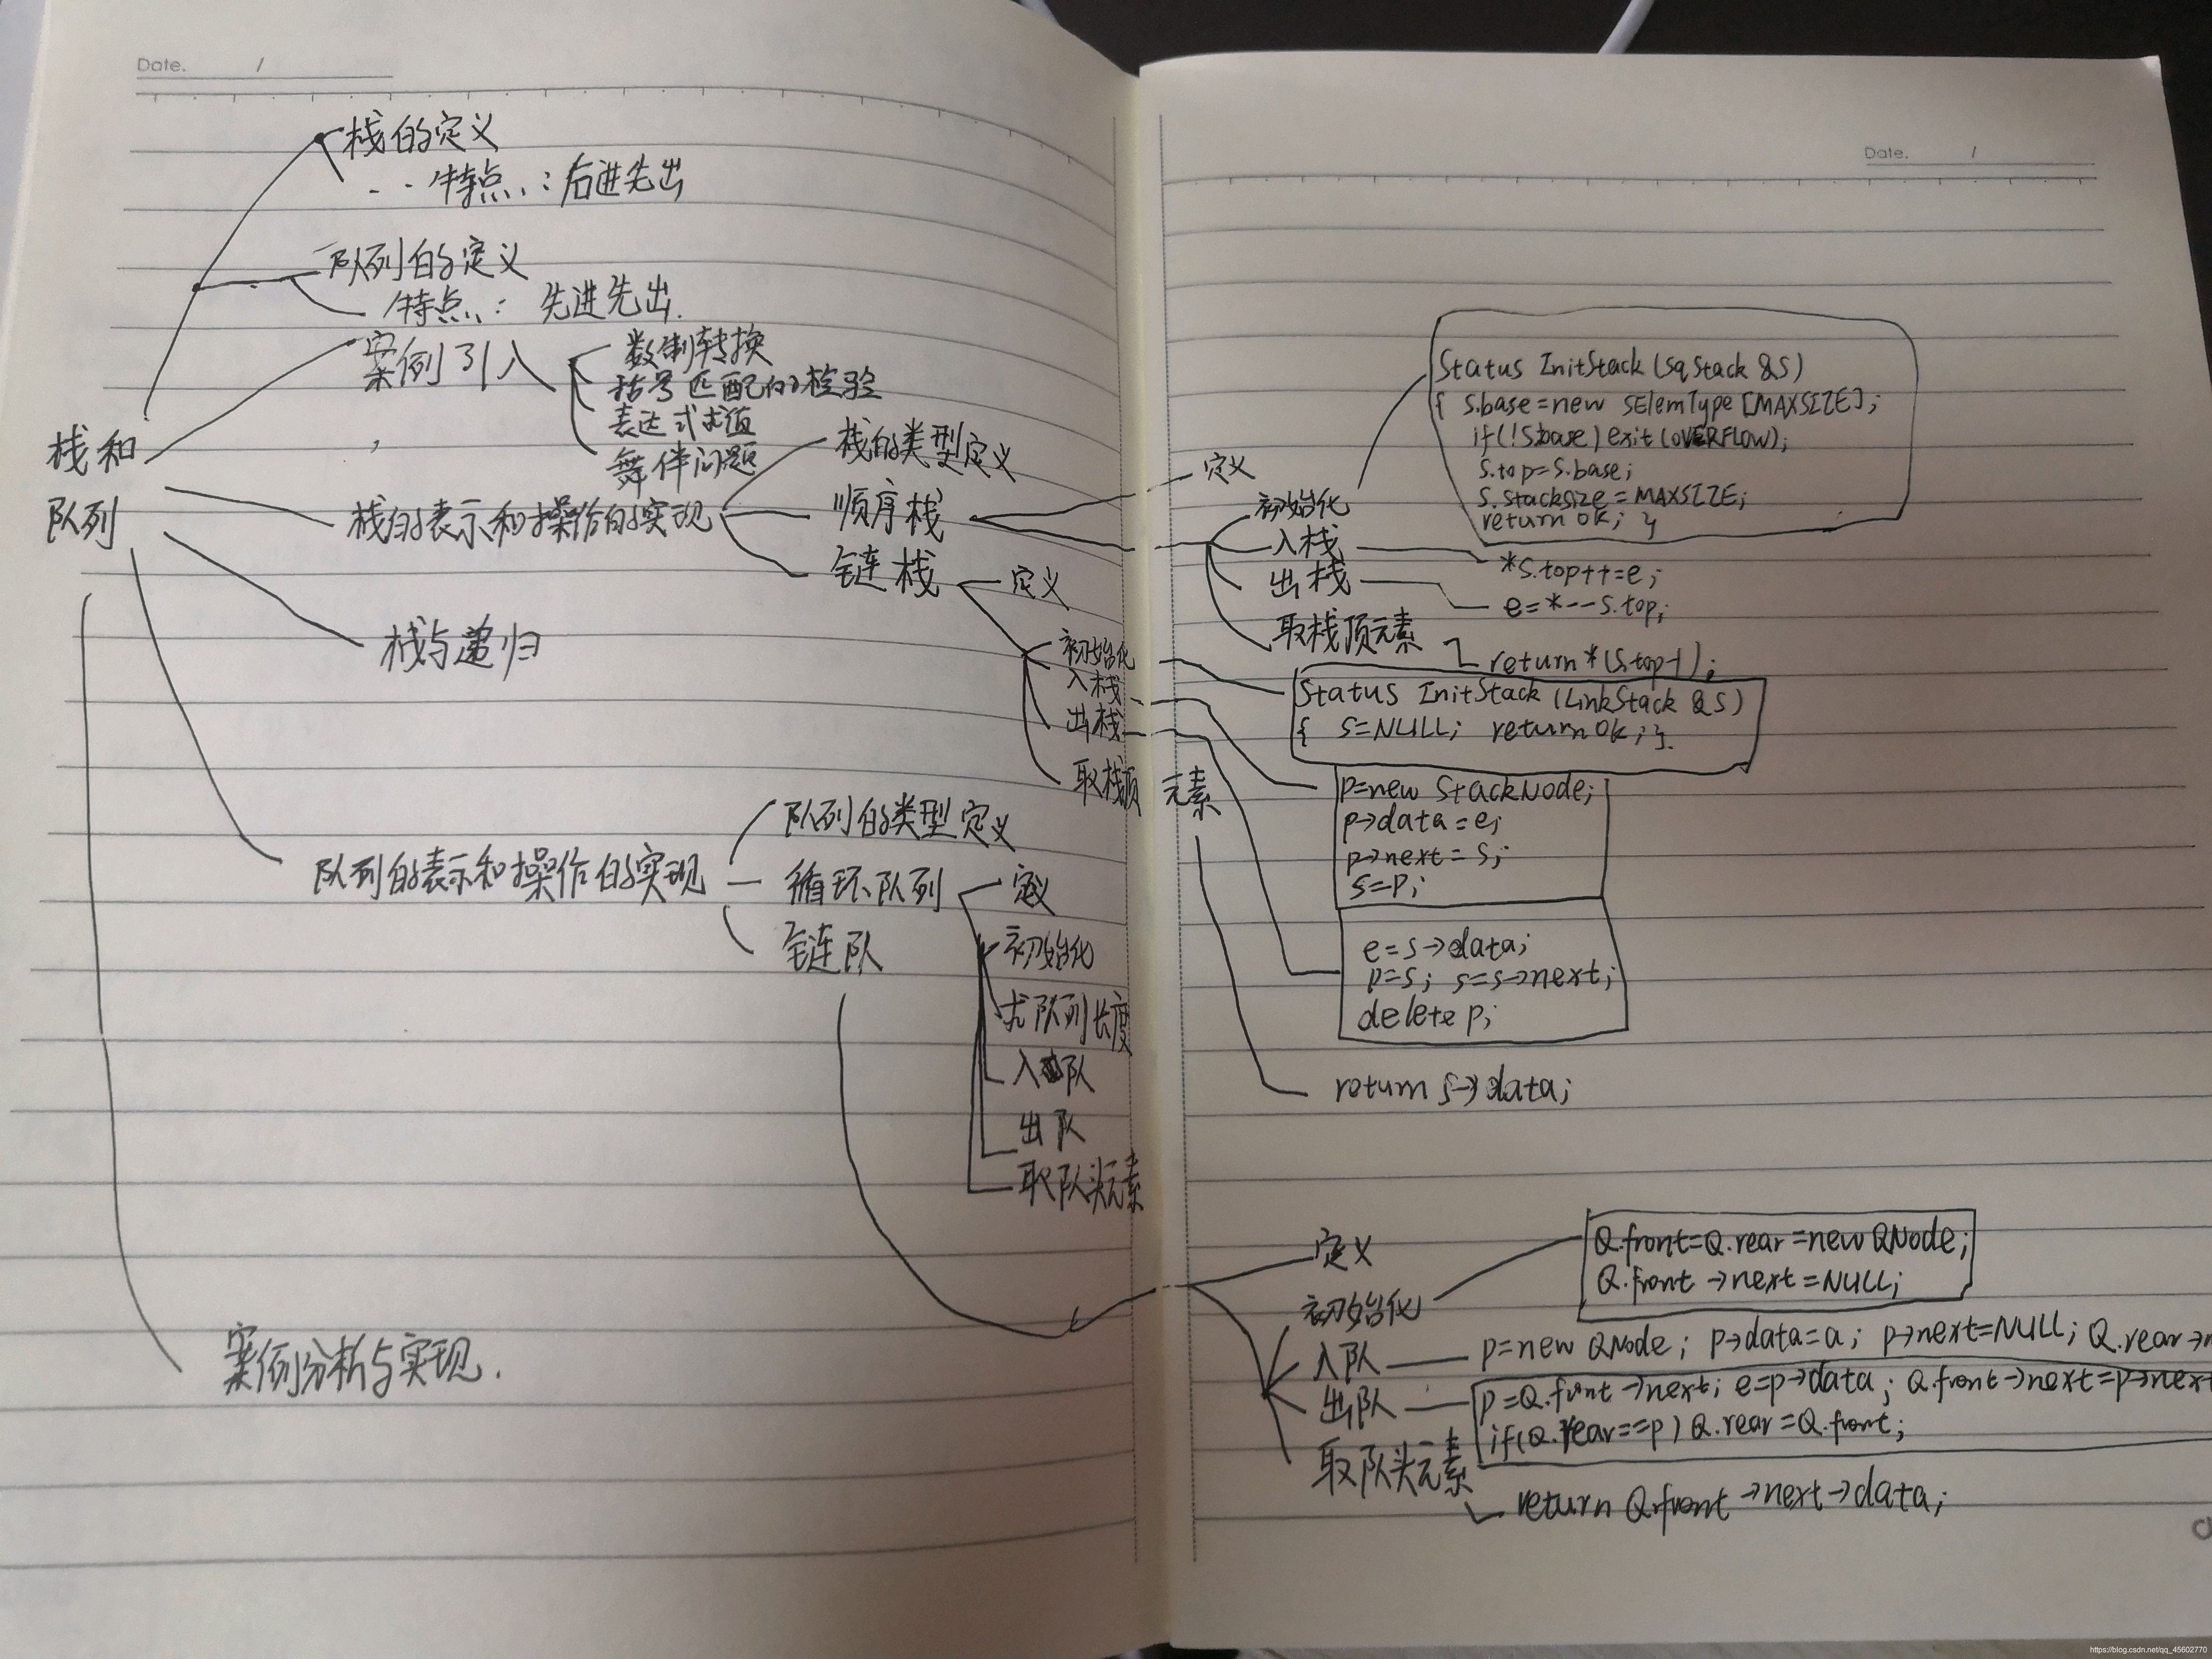 Date. /
栈的定义
特点：后进先出
队列的定义
特点：先进先出.
案例引入
数制转换
括号匹配的检验
表达式求值
舞伴问题
栈和
队列
栈的表示和操作的实现
栈的类型定义
顺序栈
链栈
定义
初始化
入栈
出栈
取栈顶元素
栈与递归
队列的表示和操作的实现
队列的类型定义
循环队列
链队
定义
初始化
求队列长度
入队
出队
取队头元素
案例分析与实现.
Date. /
定义
初始化
入栈
出栈
取栈顶元素
Status InitStack (SqStack &S)
{ S.base=new SElemType [MAXSIZE];
if(!S.base) exit (OVERFLOW);
S.top=S.base;
S.stacksize=MAXSIZE;
return ok; }
*S.top++=e;
e=*--S.top;
return *(S.top-1);
Status InitStack (LinkStack &S)
{ S=NULL; return ok; }.
p=new StackNode;
p→data=e;
p→next=S;
S=p;
e=S→data;
p=S; S=S→next;
delete p;
return S→data;
定义
初始化
Q.front=Q.rear=new QNode;
Q.front→next=NULL;
入队
p=new QNode; p→data=a; p→next=NULL; Q.rear→
出队
p=Q.front→next; e=p→data; Q.front→next=p→next
if(Q.rear==p) Q.rear=Q.front;
取队头元素
return Q.front→next→data;
https://blog.csdn.net/qq_45602770